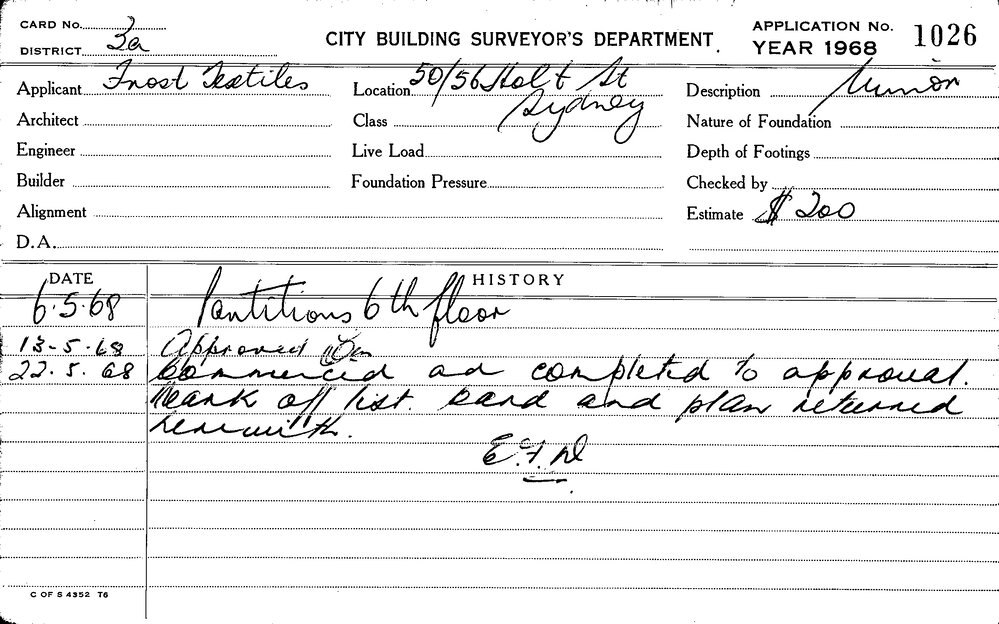 CARD No. 2
DISTRICT 2a
CITY BUILDING SURVEYOR'S DEPARTMENT.
APPLICATION No. 1026
YEAR 1968
Applicant Frost Textiles
Location 50/56 Holt St
Sydney
Description Minor
Architect
Class
Nature of Foundation
Engineer
Live Load
Depth of Footings
Builder
Foundation Pressure
Checked by
Alignment
Estimate $ 200
D.A.
DATE
HISTORY
6.5.68 Partitions 6th floor
13-5-68 Approved
22.5.68 Commenced ad completed to approval.
Mark off list. Card and plan returned
herewith.
C OF S 4352 T6